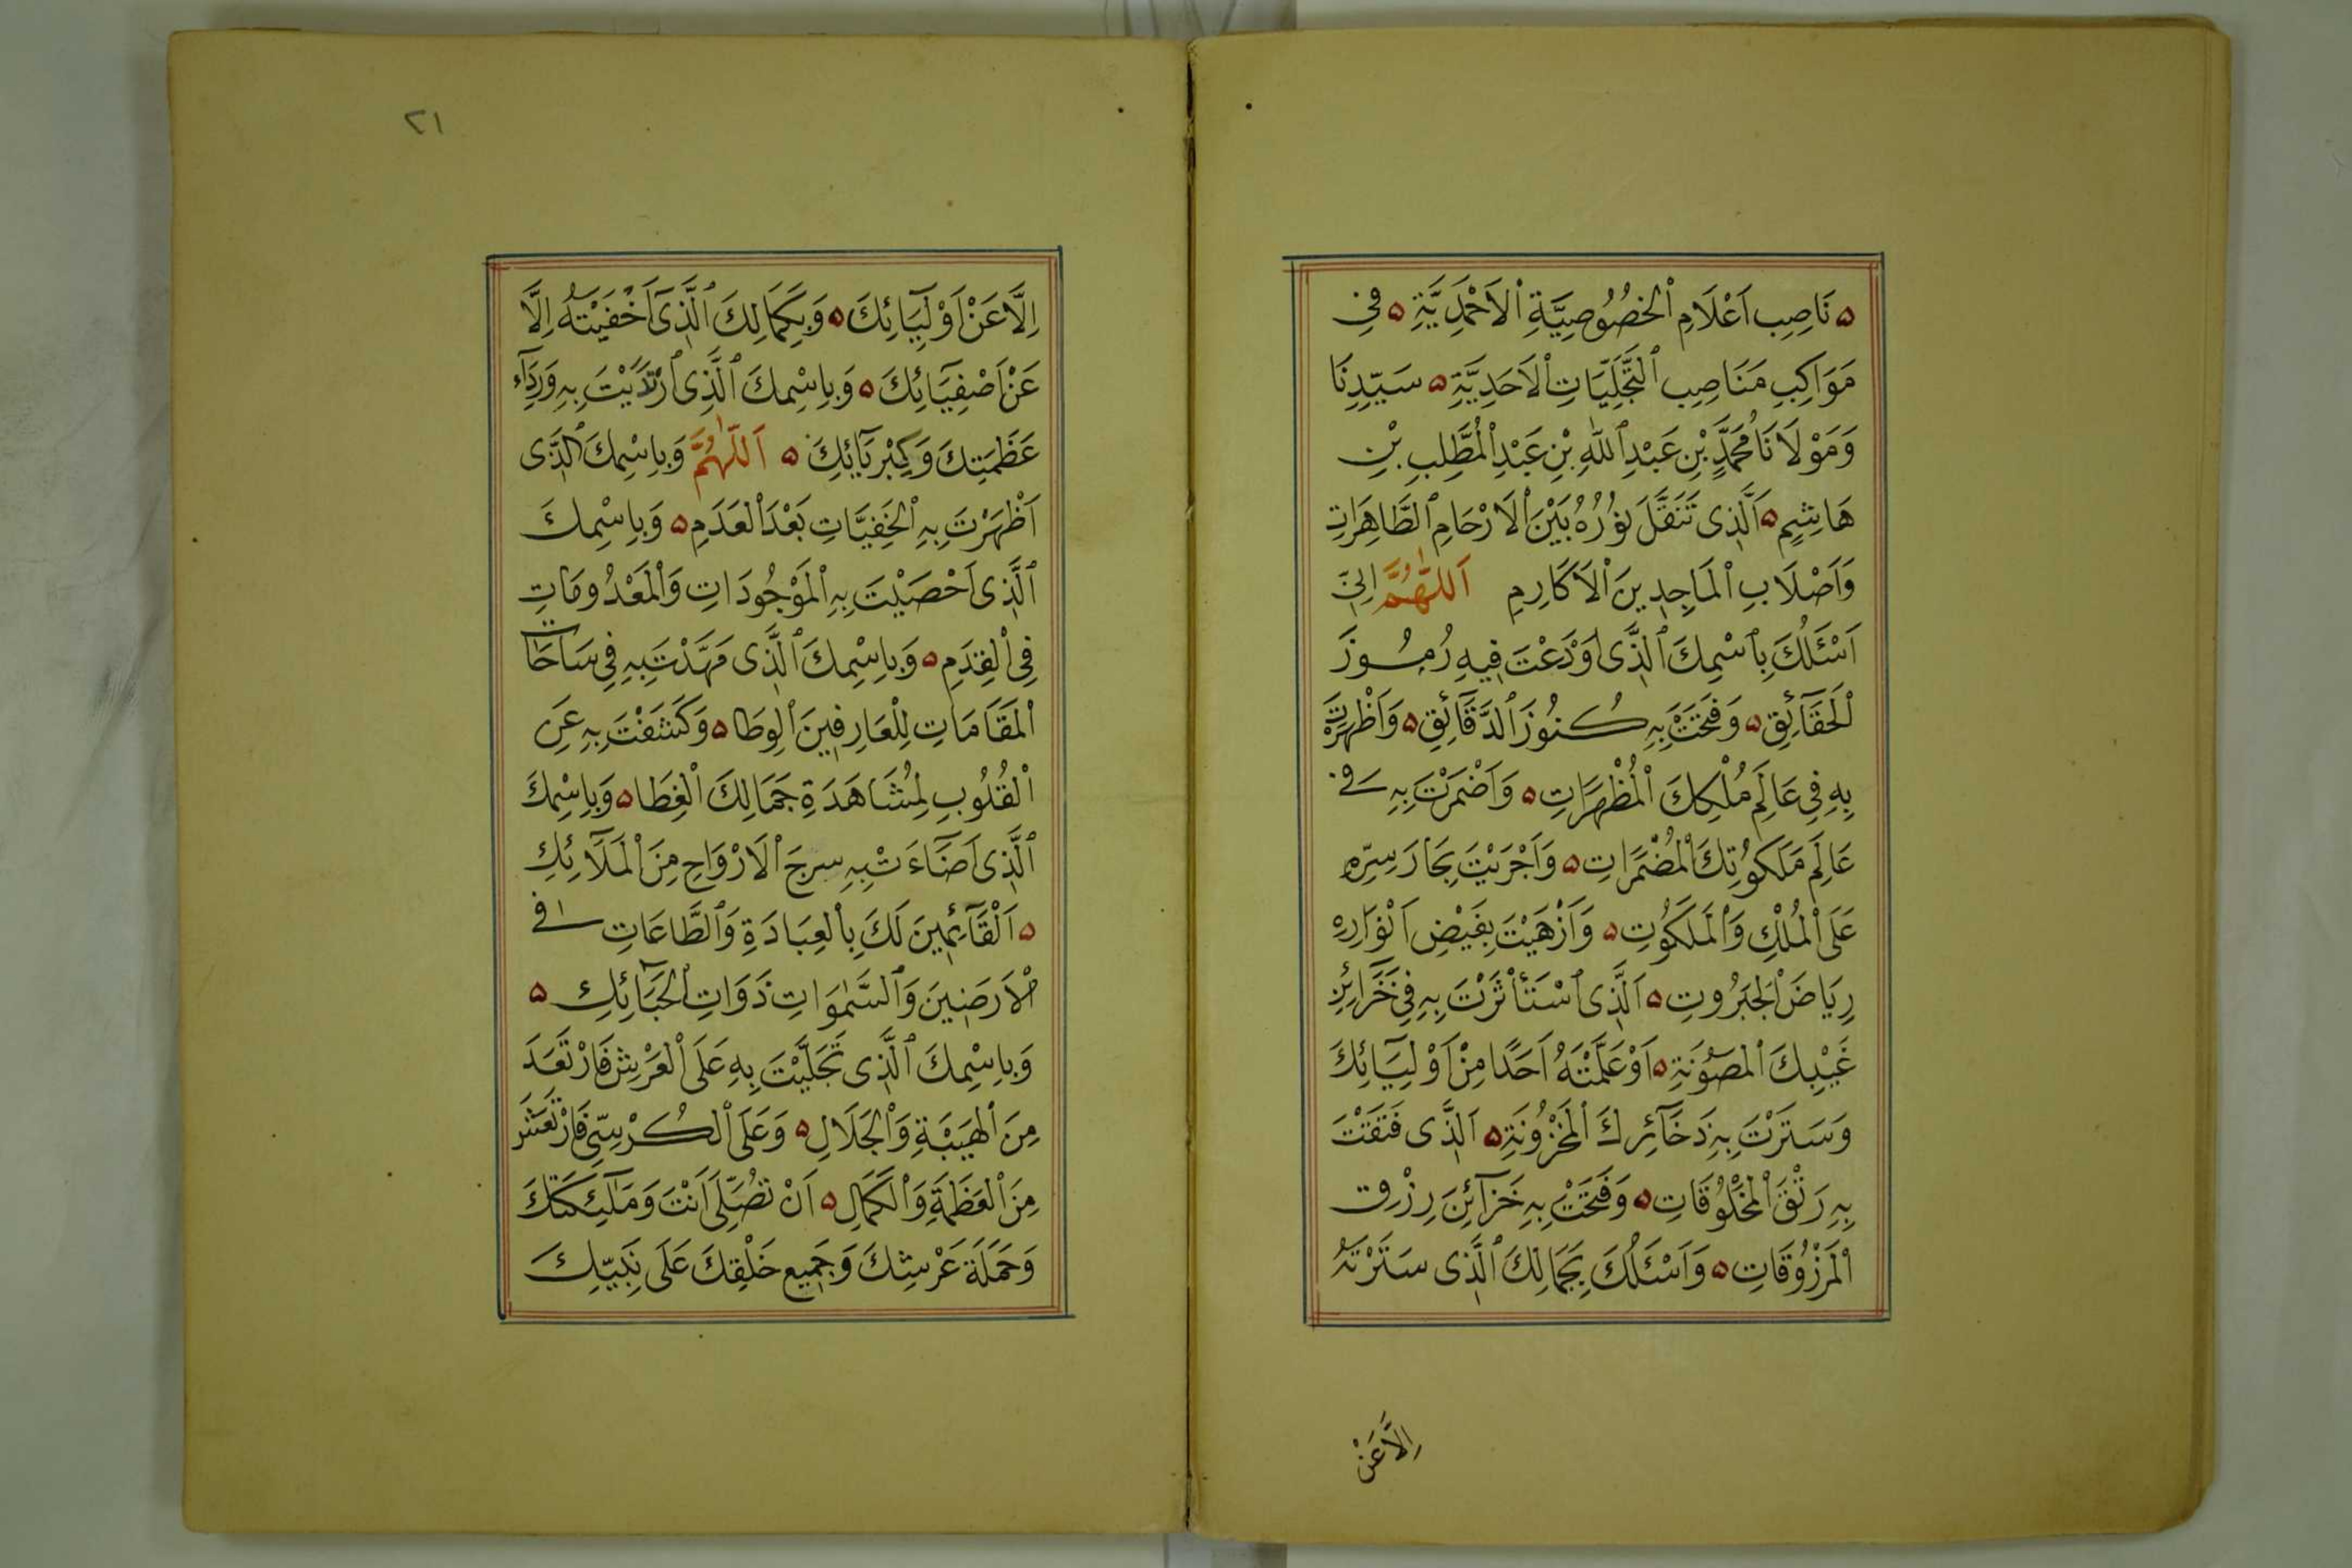 ه نَاصِبِ اَعْلَامِ الْخُصُوصِيَّةِ الْاَحْمَدِيَّةِ ه فِي
مَوَاكِبِ مَنَاصِبِ التَّجَلِّيَاتِ الْاَحَدِيَّةِ ه سَيِّدِنَا
وَمَوْلَانَا مُحَمَّدِ بْنِ عَبْدِ اللّٰهِ بْنِ عَبْدِ الْمُطَّلِبِ بْنِ
هَاشِمٍ ه اَلَّذِى تَنَقَّلَ نُورُهُ بَيْنَ الْاَرْحَامِ الطَّاهِرَاتِ
وَاَصْلَابِ الْمَاجِدِينَ الْاَكَارِمِ اَللّٰهُمَّ اِنِّي
اَسْئَلُكَ بِاسْمِكَ الَّذِى اَوْدَعْتَ فِيهِ رُمُوزَ
الْحَقَآئِقِ ه وَفَتَحْتَ بِهِ كُنُوزَ الدَّقَآئِقِ ه وَاَظْهَرْتَ
بِهِ فِي عَالَمِ مُلْكِكَ الْمُظْهَرَاتِ ه وَاَضْمَرْتَ بِهِ فِي
عَالَمِ مَلَكُوتِكَ الْمُضْمَرَاتِ ه وَاَجْرَيْتَ بِحَارَ سِرِّهِ
عَلَى الْمُلْكِ وَالْمَلَكُوتِ ه وَاَزْهَيْتَ بِفَيْضِ اَنْوَارِهِ
رِيَاضَ الْجَبَرُوتِ ه اَلَّذِى اسْتَأْثَرْتَ بِهِ فِي خَزَائِنِ
غَيْبِكَ الْمَصُونَةِ ه اَوْ عَلَّمْتَهُ اَحَدًا مِنْ اَوْلِيَآئِكَ
وَسَتَرْتَ بِهِ ذَخَآئِرَكَ الْمَخْزُونَةِ ه اَلَّذِى فَتَقْتَ
بِهِ رَتْقَ الْمَخْلُوقَاتِ ه وَفَتَحْتَ بِهِ خَزَآئِنَ رِزْقِ
الْمَرْزُوقَاتِ ه وَاَسْئَلُكَ بِجَمَالِكَ الَّذِى سَتَرْتَهُ
اِلَّا عَنْ
٢١
اِلَّا عَنْ اَوْلِيَآئِكَ ه وَبِكَمَالِكَ الَّذِىٓ اَخْفَيْتَهُ اِلَّا
عَنْ اَصْفِيَآئِكَ ه وَبِاسْمِكَ الَّذِى ارْتَدَيْتَ بِهِ وَرِدَآءِ
عَظَمَتِكَ وَكِبْرِيَآئِكَ ه اَللّٰهُمَّ وَبِاسْمِكَ الَّذِى
اَظْهَرْتَ بِهِ الْخَفِيَّاتِ بَعْدَ الْعَدَمِ ه وَبِاسْمِكَ
الَّذِى اَحْصَيْتَ بِهِ الْمَوْجُودَاتِ وَالْمَعْدُومَاتِ
فِي الْقِدَمِ ه وَبِاسْمِكَ الَّذِى مَهَّدْتَ بِهِ فِي سَاحَاتِ
الْمَقَامَاتِ لِلْعَارِفِينَ الْوِطَا ه وَكَشَفْتَ بِهِ عَنِ
الْقُلُوبِ لِمُشَاهَدَةِ جَمَالِكَ الْغِطَا ه وَبِاسْمِكَ
الَّذِى اَضَآءَتْ بِهِ سرجَ الْاَرْوَاحِ مِنَ الْمَلَآئِكِ
ه اَلْقَآئِمِينَ لَكَ بِالْعِبَادَةِ وَالطَّاعَاتِ فِي
الْاَرَضِينَ وَالسَّمٰوَاتِ ذَوَاتِ الْحَبَآئِكِ ه
وَبِاسْمِكَ الَّذِى تَجَلَّيْتَ بِهِ عَلَى الْعَرْشِ فَارْتَعَدَ
مِنَ الْهَيْبَةِ وَالْجَلَالِ ه وَعَلَى الْكُرْسِيِّ فَارْتَعَشَ
مِنَ الْعَظَمَةِ وَالْكَمَالِ ه اَنْ تُصَلِّىَ اَنْتَ وَمَلٰٓئِكَتُكَ
وَحَمَلَةَ عَرْشِكَ وَجَمِيعِ خَلْقِكَ عَلَى نَبِيِّكَ